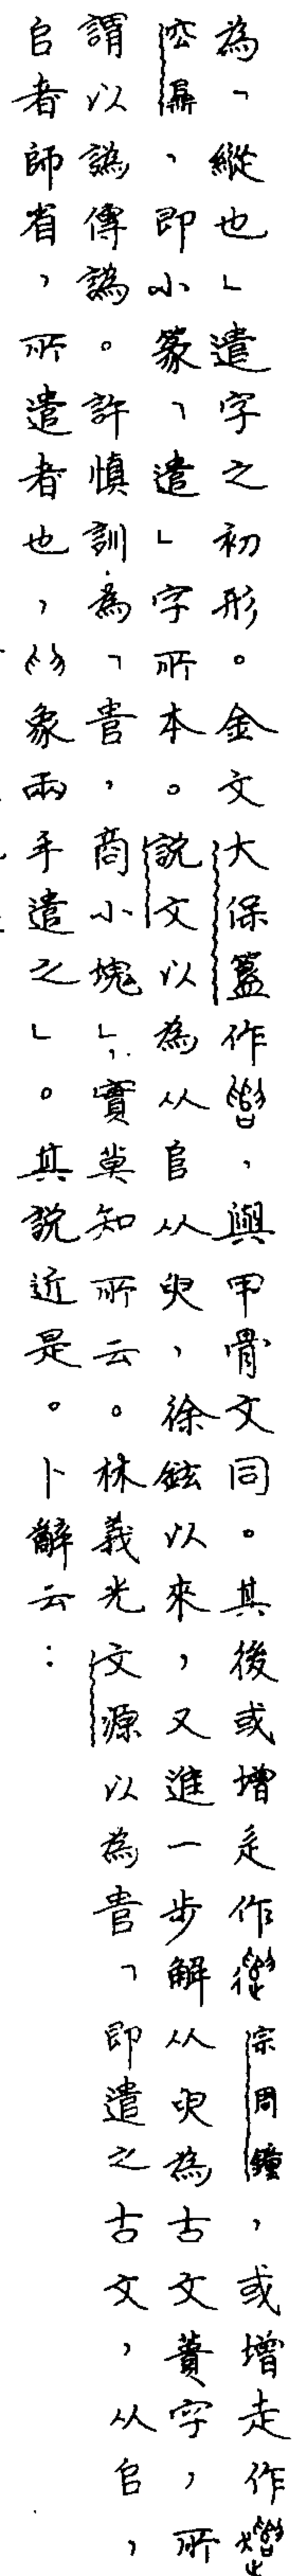 為「縱也」遣字之初形。金文大保簋作，與甲骨文同。其後或增辵作宗周鐘，或增走作
鼎，即小篆「遣」字所本。說文以為从𠂤从臾，徐鉉以來，又進一步解从臾為古文蕢字，所
謂以譌傳譌。許慎訓為「𠳋，商小塊」，實莫知所云。林義光文源以為𠳋「即遣之古文，从𠂤，
𠂤者師省，所遣者也，象兩手遣之」。其說近是。卜辭云：